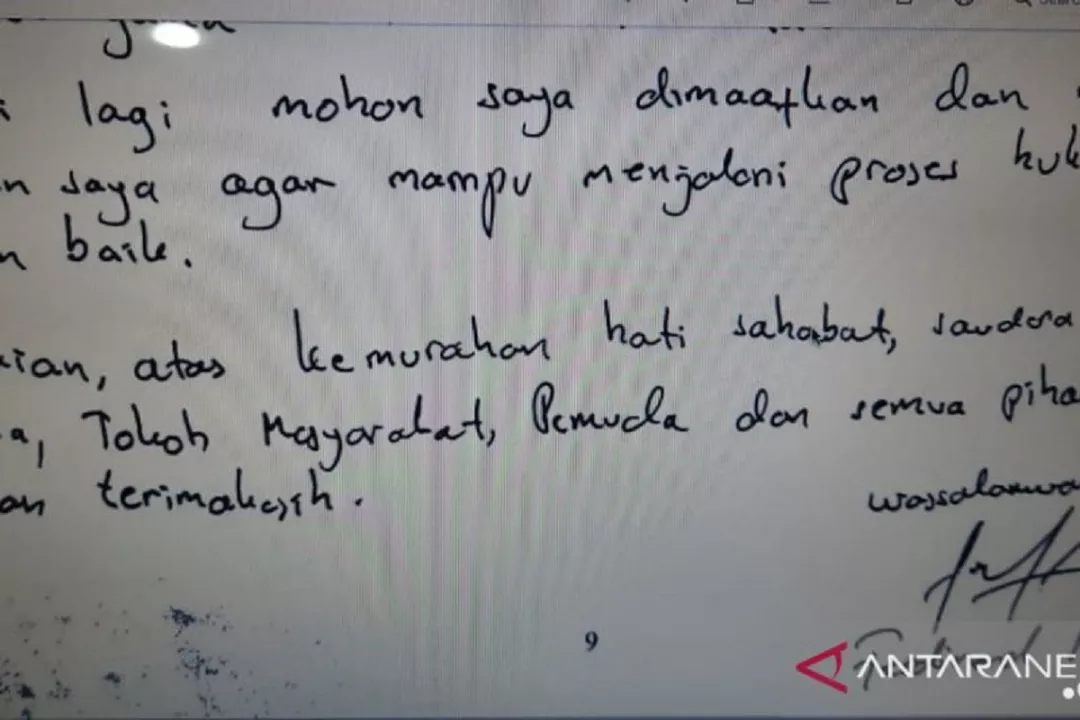 lagi mohon saya dimaafkan dan
n saya agar mampu menjalani proses huk
n baik.
ian, atas kemurahan hati sahabat, saudara
a, Tokoh Masyarakat, Pemuda dan semua piha
an terimakasih.
wassalamua
9
ANTARANE